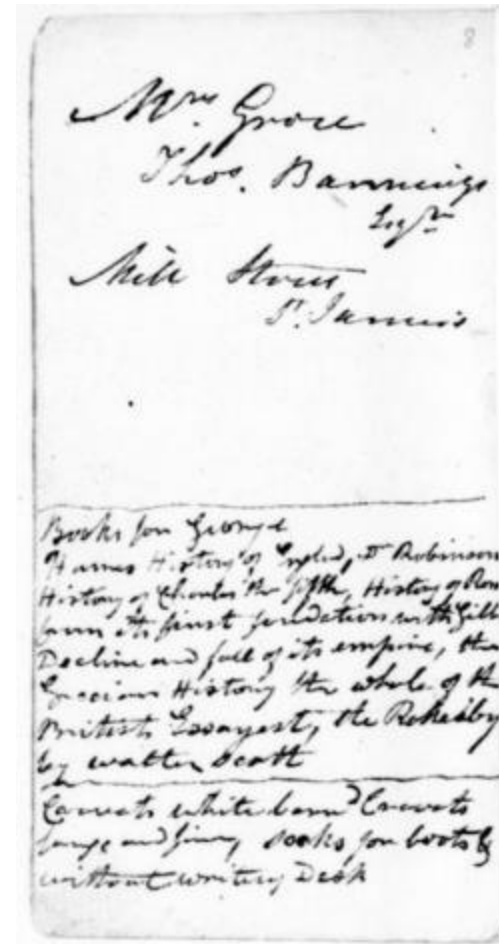 8
Mrs. Grove
Thos. Bannings
Esqr.
Mill Street
St. James's
Books for George
Humes History of England, Dr Robinson
History of Charles the fifth, History of Rom
from its first foundation with Gibb
Decline and fall of its empire, the
Grecian History the whole of the
British Essayest, the Rokeby
by walter scott
Cravats white Cravats
large and fine, socks for boots &
without writing Desk